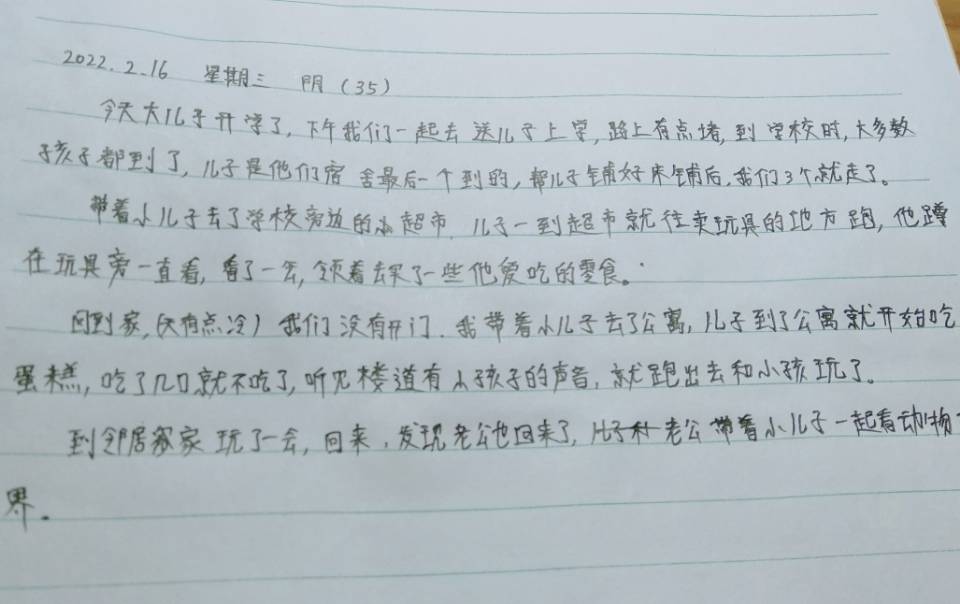 2022.2.16 星期三 阴（35）
今天大儿子开学了，下午我们一起去送儿子上学，路上有点堵，到学校时，大多数
孩子都到了，儿子是他们宿舍最后一个到的，帮儿子铺好床铺后，我们3个就走了。
带着小儿子去了学校旁边的小超市，儿子一到超市就往卖玩具的地方跑，他蹲
在玩具旁一直看，看了一会，领着去买了一些他爱吃的零食。
回到家，（天有点冷）我们没有开门，我带着小儿子去了公寓，儿子到了公寓就开始吃
蛋糕，吃了几口就不吃了，听见楼道有小孩子的声音，就跑出去和小孩玩了。
到邻居家玩了一会，回来，发现老公也回来了，老公带着小儿子一起看动物
界。